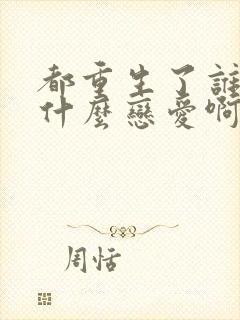 都重生了誰
什麼戀愛啊
周恬